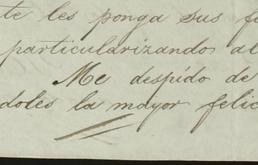 te les ponga sus f
particularizando al
Me despído de
doles la mayor felic